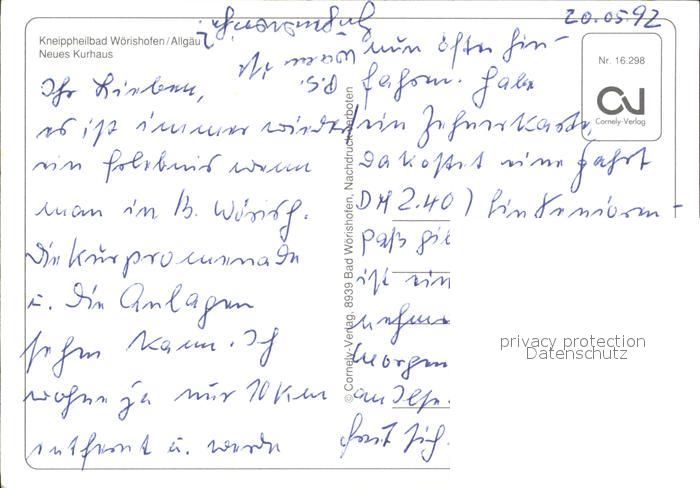 20.05.92
Kneippheilbad Wörishofen/Allgäu
Neues Kurhaus
Ihr Lieben,
es ist immer wieder
ein Erlebnis wenn
man in B. Wörish.
die Kurpromenade
u. die Anlagen
sehen kann. Ich
wohne ja nur 10 km
entfernt u. werde
nun öfter hin-
fahren. Habe
ein Zehnerkarte,
da kostet eine Fahrt
DM 2.40) Ein Senioren-
paß
ist ein
nehme
Morgen
freut sich
P.S.
© Cornely-Verlag, 8939 Bad Wörishofen, Nachdruck verboten
Nr. 16.298
Cornely-Verlag
privacy protection
Datenschutz